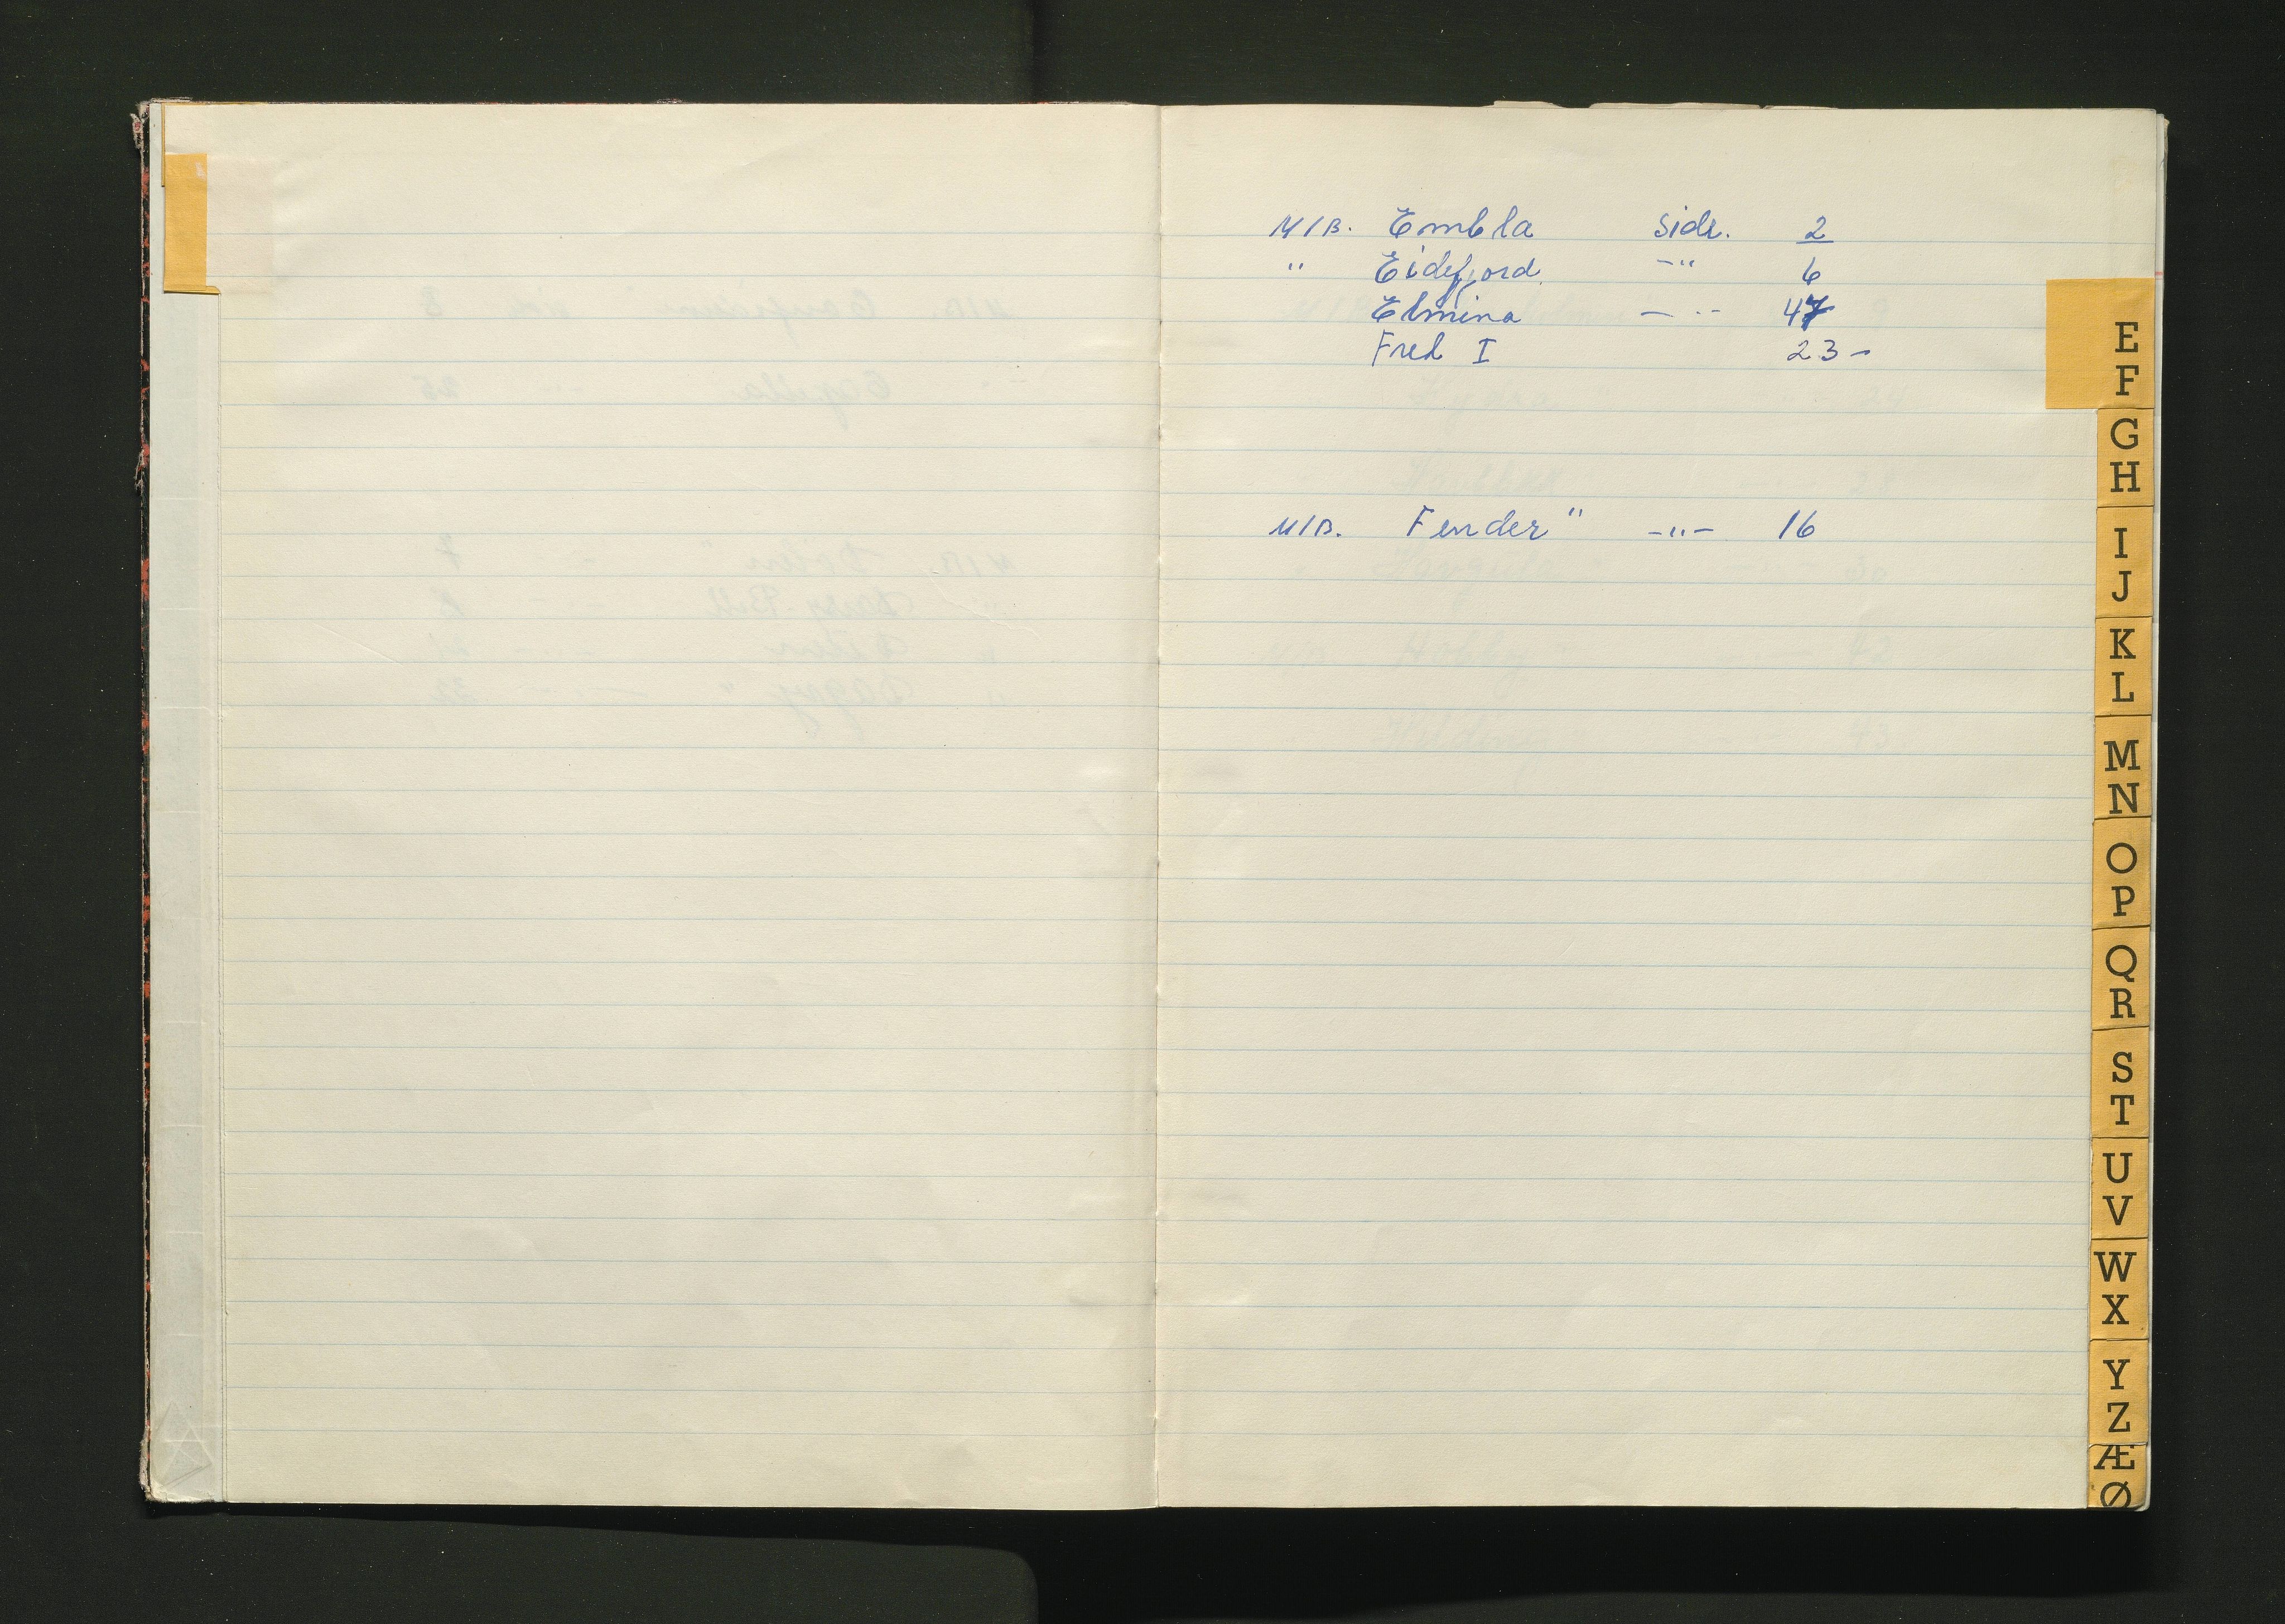 M/B. Embla side. 2
" Eidefjord -" 6
Elmina - " 47
Fred I 23-
M/B. Fender" -"- 16
E
F
G
H
I
J
K
L
M
N
O
P
Q
R
S
T
U
V
W
X
Y
Z
Æ
Ø